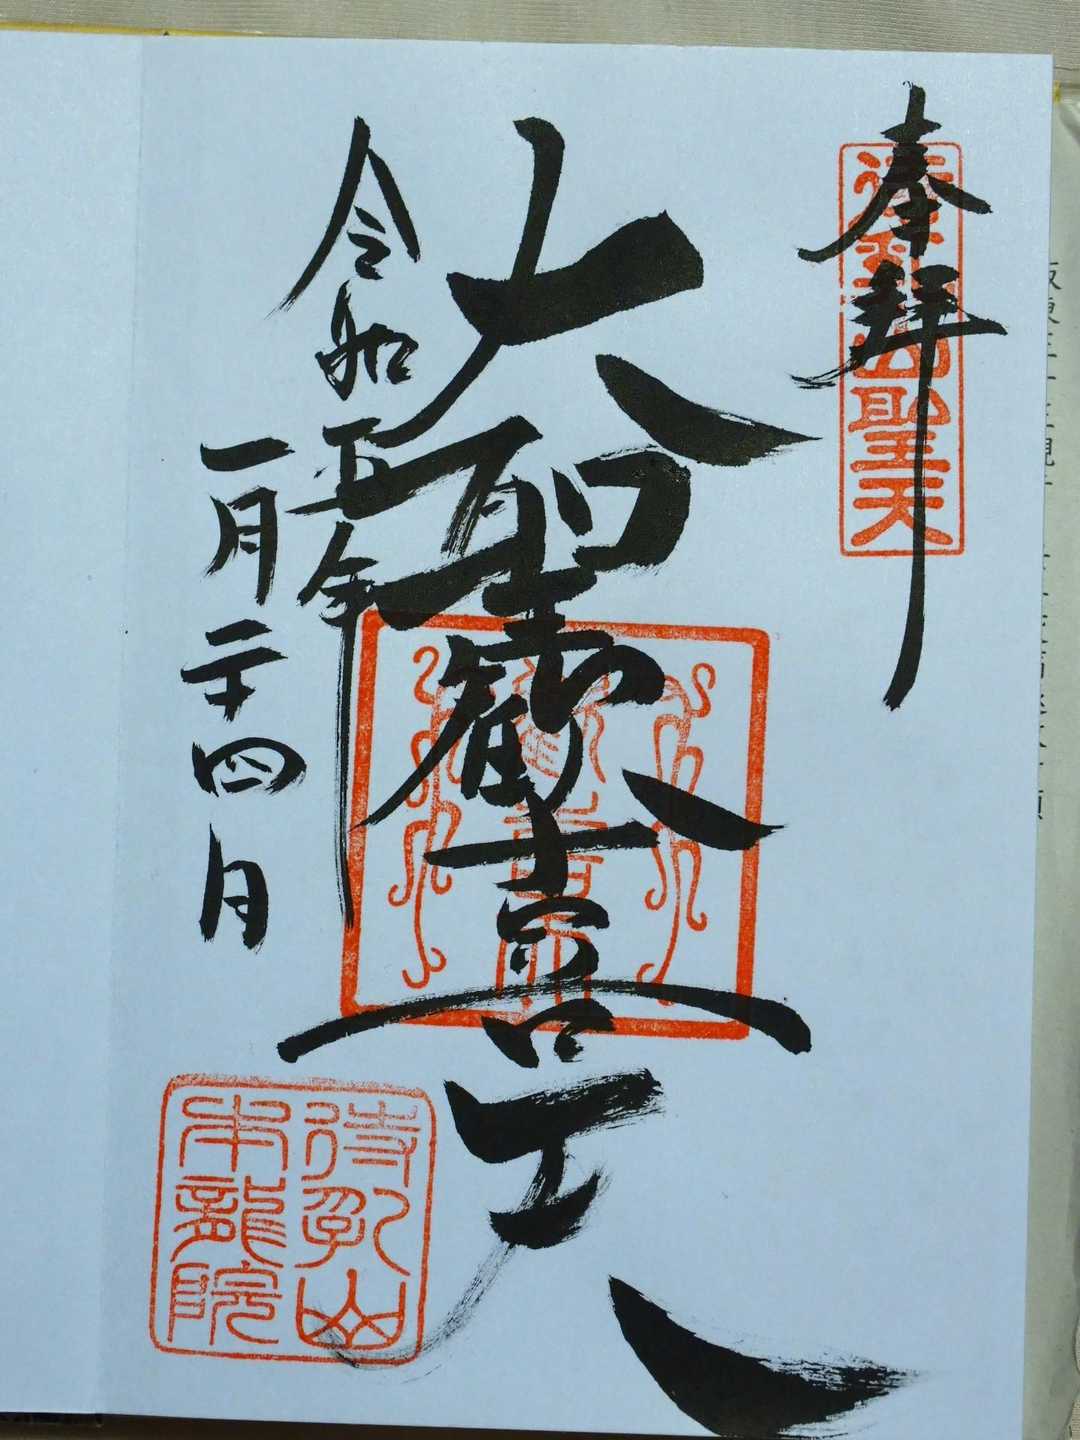 奉拝
待乳山聖天
大聖歓喜天
令和五年
一月二十四日
待乳山
本龍院